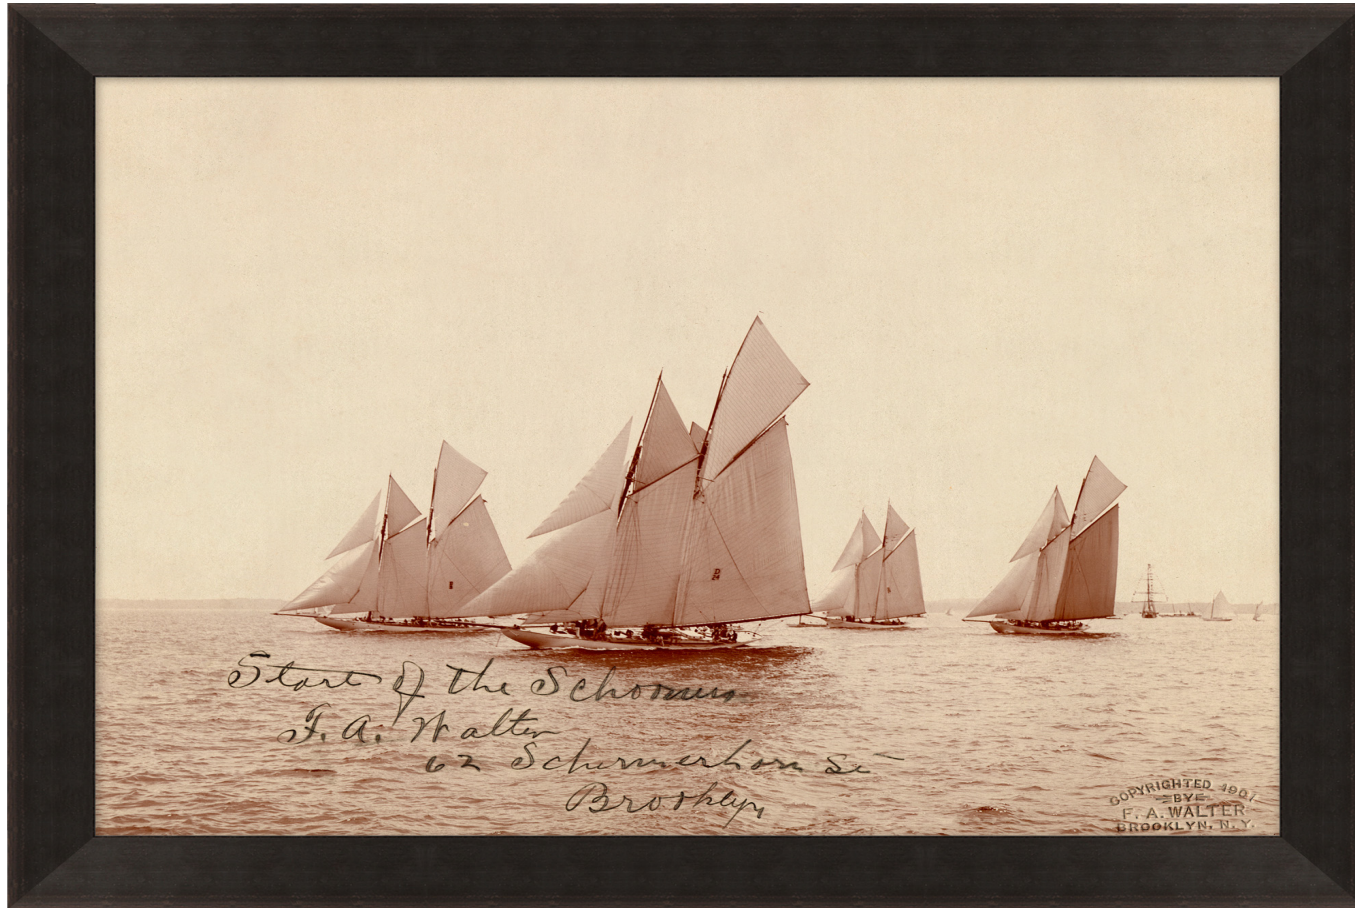 Start of the Schooners
F. A. Walter
62 Schermerhorn St
Brooklyn
COPYRIGHTED 1901
BYE
F. A. WALTER
BROOKLYN, N. Y.